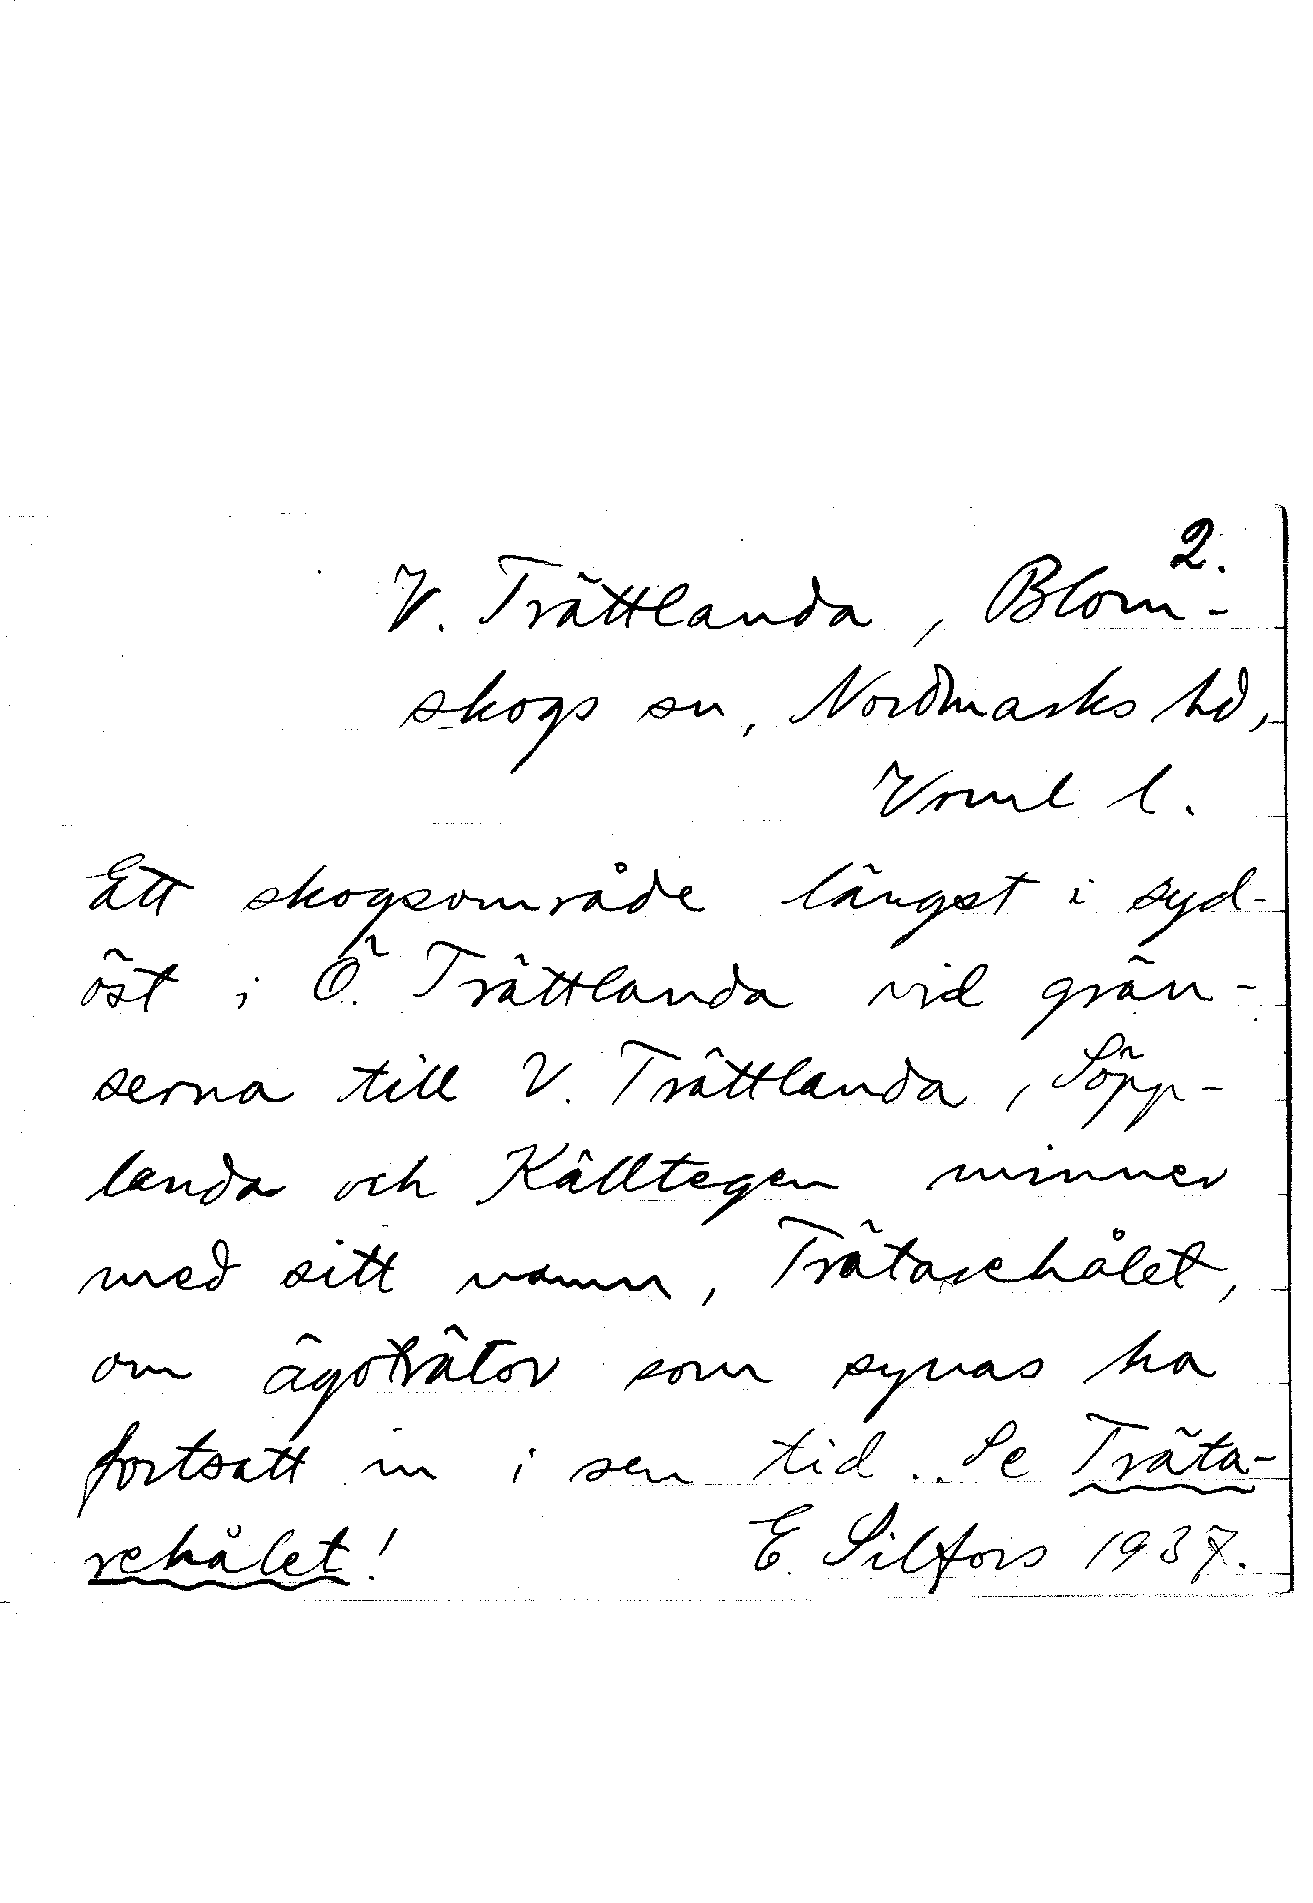 2.
V. Trättlanda, Blom-
skogs sn, Nordmarks hd,
Vrml l.
Ett skogsområde längst i syd-
öst i Ö. Trättlanda vid grän-
serna till V. Trättlanda, Söpp-
landa och Källtegen minner
med sitt namn, Trätarehålet,
om ägoträtor som synas ha
fortsatt in i sen tid. Se Träta-
rehålet!
E. Silfors 1937.